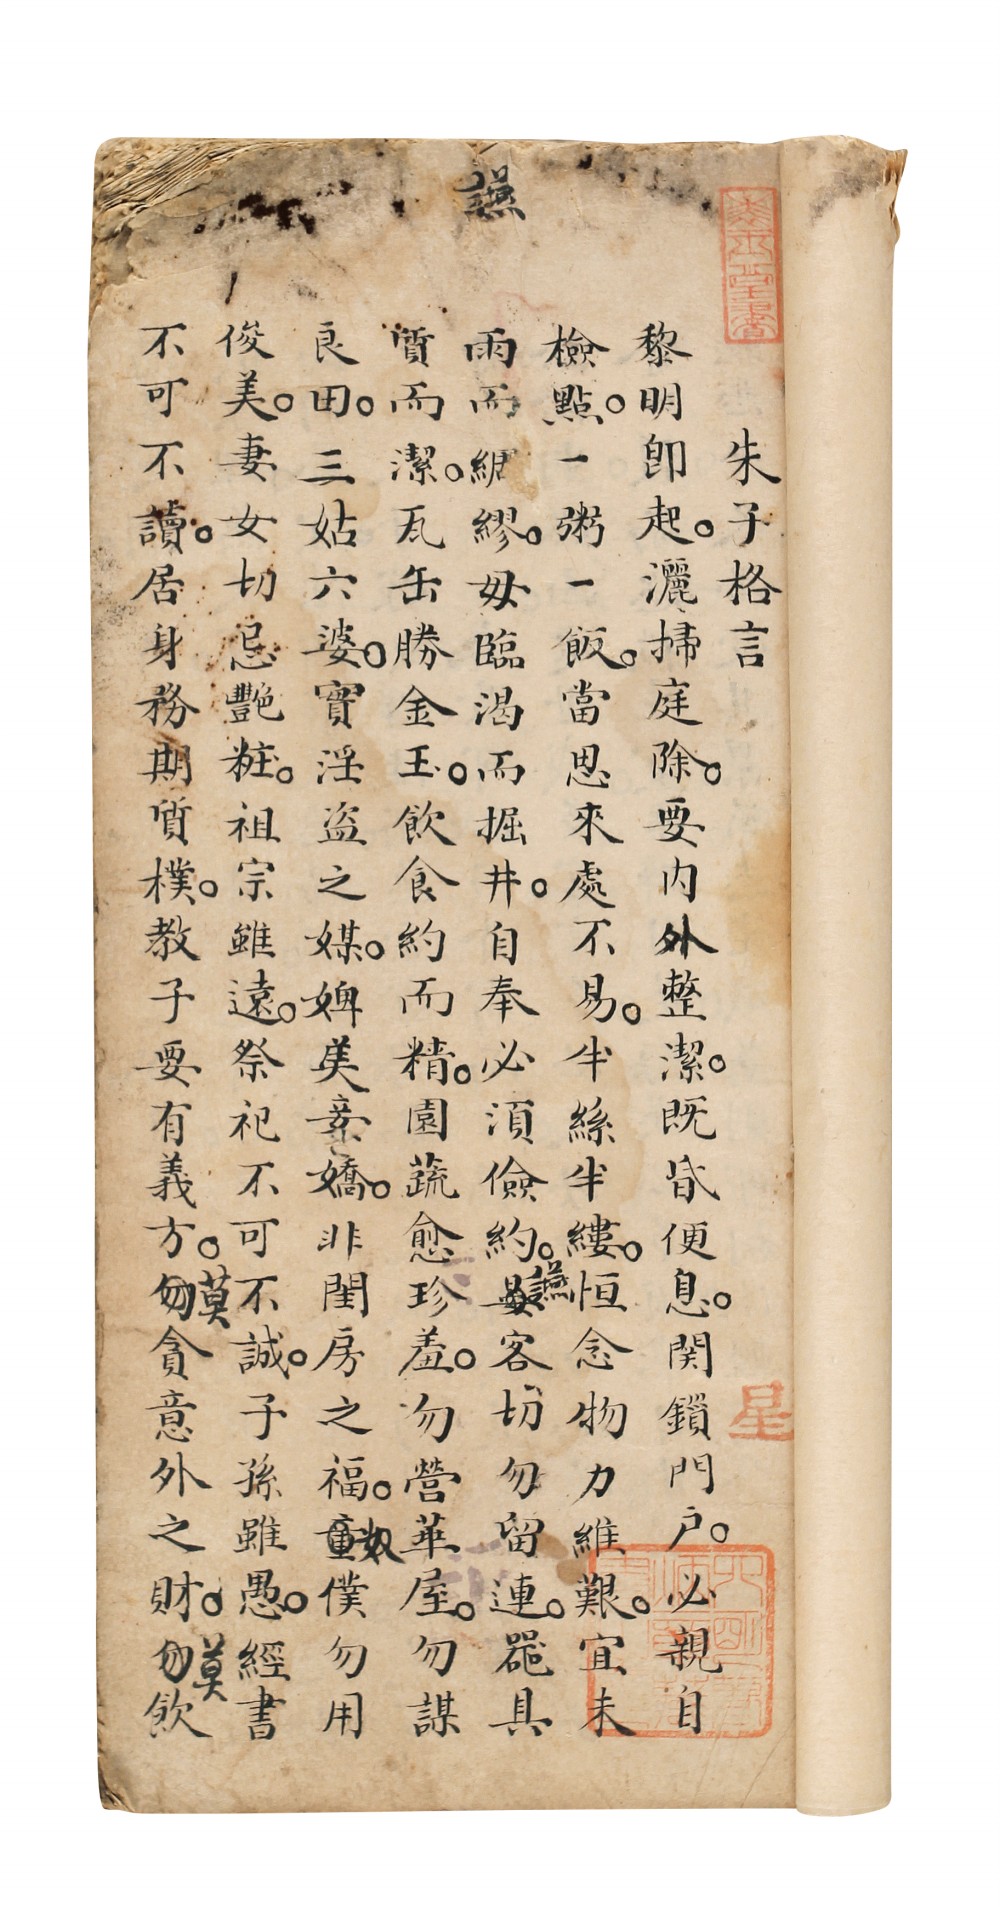 讌
朱子格言
黎明即起。灑掃庭除。要内外整潔。既昏便息。関鎖門户。必親自
檢點。一粥一飯。當思來處不易。半絲半縷。恒念物力維艱。宜未
雨而綢繆。毋臨渴而掘井。自奉必湏儉約。宴讌客切勿留連。噐具
質而潔。瓦缶勝金玉。飲食約而精。園蔬愈珍羞。勿營華屋。勿謀
良田。三姑六婆。實淫盗之媒。婢美妾嬌。非閨房之福。童奴僕勿用
俊美。妻女切忌艷粧。祖宗雖遠。祭祀不可不誠。子孫雖愚。經書
不可不讀。居身務期質樸。教子要有義方。勿莫貪意外之財。勿莫飲
星